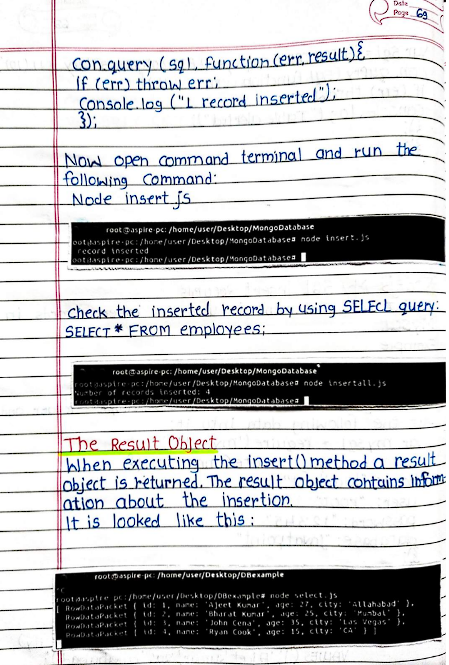 Date
Page 69
Con.query (sql, function (err, result){
If (err) throw err;
Console.log ("1 record inserted");
});
Now open command terminal and run the
following Command:
Node insert js
root@aspire-pc: /home/user/Desktop/MongoDatabase
root@aspire-pc:/home/user/Desktop/MongoDatabase# node insert.js
record inserted
root@aspire-pc:/home/user/Desktop/MongoDatabase#
Check the inserted record by using SELECL query:
SELECT * FROM employees;
root@aspire-pc: /home/user/Desktop/MongoDatabase
root@aspire-pc:/home/user/Desktop/MongoDatabase# node insertall.js
Number of records inserted: 4
root@aspire-pc:/home/user/Desktop/MongoDatabase#
The Result Object
When executing the insert() method a result
object is returned. The result object contains inform-
ation about the insertion.
It is looked like this:
root@aspire-pc: /home/user/Desktop/DBexample
^C
root@aspire-pc:/home/user/Desktop/DBexample# node select.js
[ RowDataPacket { id: 1, name: 'Ajeet Kumar', age: 27, city: 'Allahabad' },
RowDataPacket { id: 2, name: 'Bharat Kumar', age: 25, city: 'Mumbai' },
RowDataPacket { id: 3, name: 'John Cena', age: 35, city: 'Las Vegas' },
RowDataPacket { id: 4, name: 'Ryan Cook', age: 15, city: 'CA' } ]